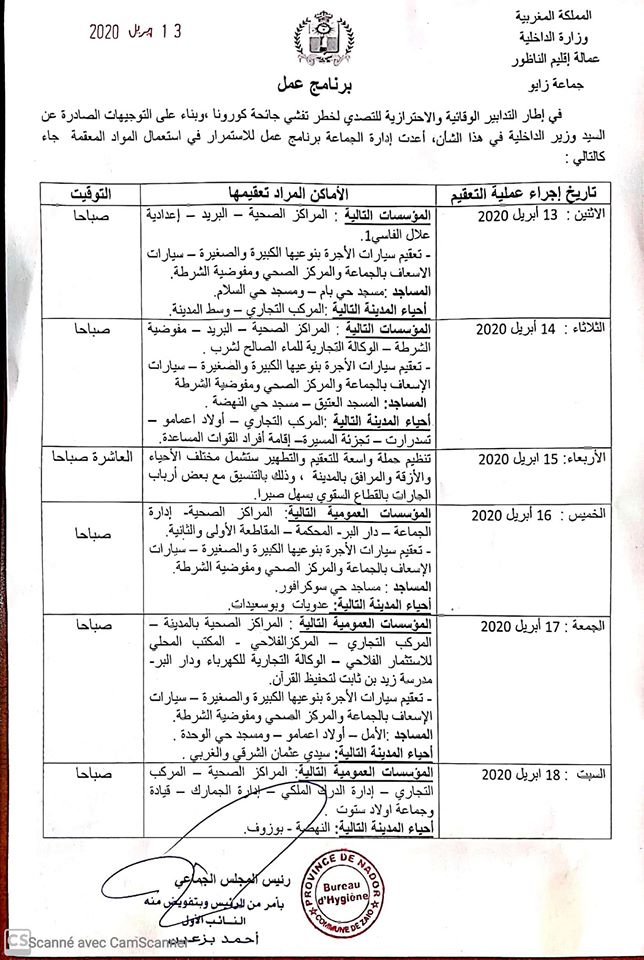 المملكة المغربية
وزارة الداخلية
عمالة إقليم الناظور
جماعة زايو
13 ابريل 2020
برنامج عمل
في إطار التدابير الوقائية والاحترازية للتصدي لخطر تفشي جائحة كورونا ،وبناء على التوجيهات الصادرة عن
السيد وزير الداخلية في هذا الشأن، أعدت إدارة الجماعة برنامج عمل للاستمرار في استعمال المواد المعقمة جاء
كالتالي :
تاريخ إجراء عملية التعقيم
الأماكن المراد تعقيمها
التوقيت
الاثنين : 13 أبريل 2020
المؤسسات التالية : المراكز الصحية – البريد – إعدادية
علال الفاسي1.
- تعقيم سيارات الأجرة بنوعيها الكبيرة والصغيرة – سيارات
الاسعاف بالجماعة والمركز الصحي ومفوضية الشرطة.
المساجد :مسجد حي بام – ومسجد حي السلام.
أحياء المدينة التالية :المركب التجاري – وسط المدينة.
صباحا
الثلاثاء : 14 أبريل 2020
المؤسسات التالية : المراكز الصحية – البريد – مفوضية
الشرطة – الوكالة التجارية للماء الصالح لشرب .
- تعقيم سيارات الأجرة بنوعيها الكبيرة والصغيرة – سيارات
الإسعاف بالجماعة والمركز الصحي ومفوضية الشرطة
المساجد: المسجد العتيق – مسجد حي النهضة .
أحياء المدينة التالية :المركب التجاري – أولاد اعمامو –
تسدرارت – تجزئة المسيرة– إقامة أفراد القوات المساعدة.
صباحا
الأربعاء: 15 ابريل 2020
تنظيم حملة واسعة للتعقيم والتطهير ستشمل مختلف الأحياء
والأزقة والمرافق بالمدينة ، وذلك بالتنسيق مع بعض أرباب
الجارات بالقطاع السقوي بسهل صبرا.
العاشرة صباحا
الخميس : 16 أبريل 2020
المؤسسات العمومية التالية: المراكز الصحية- إدارة
الجماعة – دار البر- المحكمة – المقاطعة الأولى والثانية.
- تعقيم سيارات الأجرة بنوعيها الكبيرة والصغيرة – سيارات
الإسعاف بالجماعة والمركز الصحي ومفوضية الشرطة.
المساجد : مساجد حي سوكرافور.
أحياء المدينة التالية: عدويات وبوسعيدات.
صباحا
الجمعة : 17 أبريل 2020
المؤسسات العمومية التالية : المراكز الصحية بالمدينة –
المركب التجاري – المركزالفلاحي - المكتب المحلي
للاستثمار الفلاحي – الوكالة التجارية للكهرباء ودار البر-
مدرسة زيد بن ثابت لتحفيظ القرآن.
- تعقيم سيارات الأجرة بنوعيها الكبيرة والصغيرة – سيارات
الإسعاف بالجماعة والمركز الصحي ومفوضية الشرطة.
المساجد : الأمل – أولاد اعمامو – ومسجد حي الوحدة .
أحياء المدينة التالية: سيدي عثمان الشرقي والغربي .
صباحا
السبت : 18 ابريل 2020
المؤسسات العمومية التالية: المراكز الصحية – المركب
التجاري – إدارة الدرك الملكي – إدارة الجمارك – قيادة
وجماعة اولاد ستوت .
أحياء المدينة التالية: النهضة - بوزوف.
صباحا
رئيس المجلس الجماعي
بأمر من الرئيس وبتفويض منه
النائب الأول
PROVINCE DE NADOR
Bureau
d'Hygiène
COMMUNE DE ZAIO
CS Scanné avec CamScanner